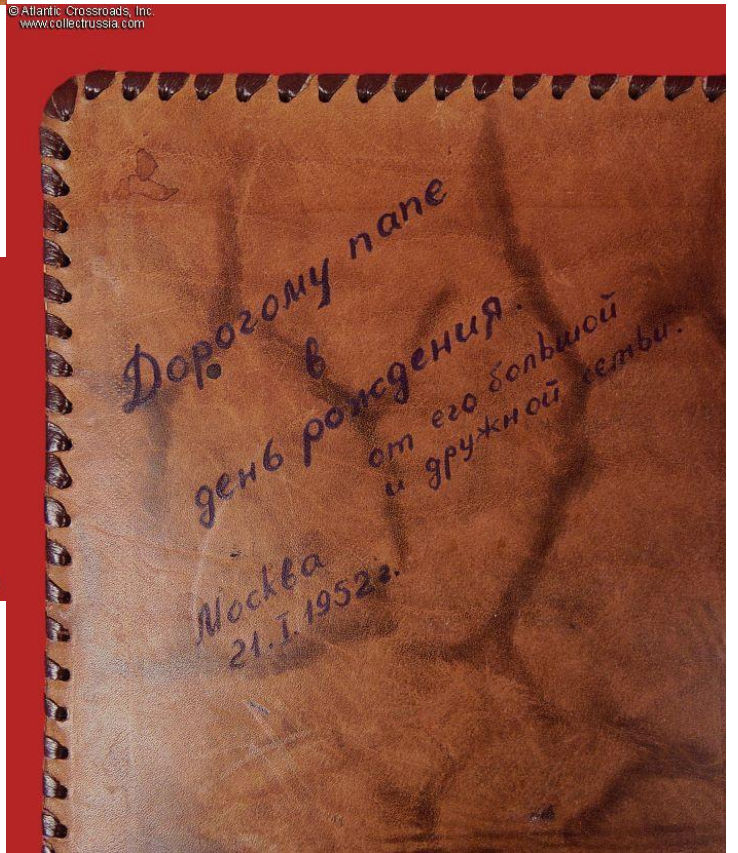 © Atlantic Crossroads, Inc.
www.collectrussia.com
Дорогому папе
в
день рождения.
от его большой
и дружной семьи.
Москва
21.I.1952г.